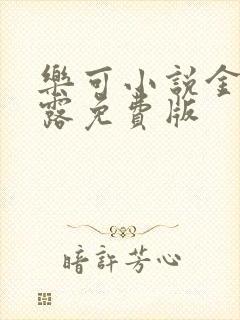 樂可小說金
露免費版
暗許芳心